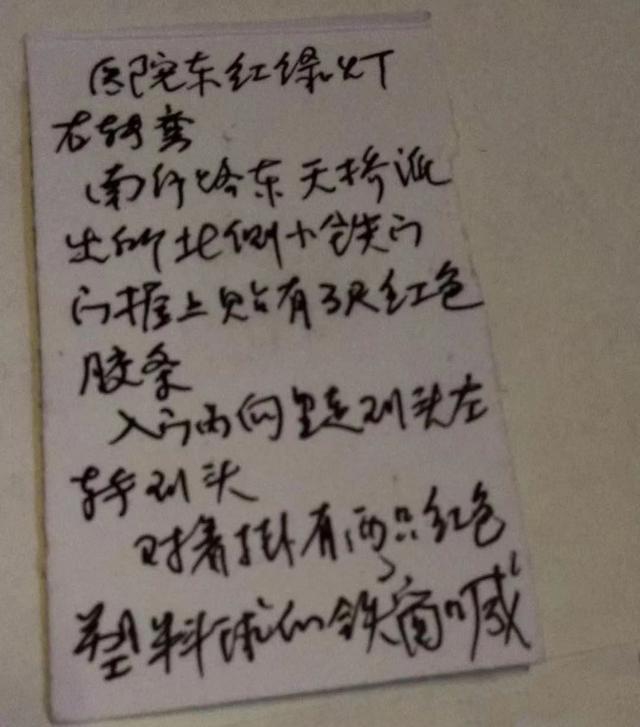 医院东红绿灯
右转弯
南行路东天桥派
出所北侧小铁门
门握上贴有了只红色
胶条
入门内向里走到头左
转到头
对着挂有两只红色
塑料球的铁窗喊